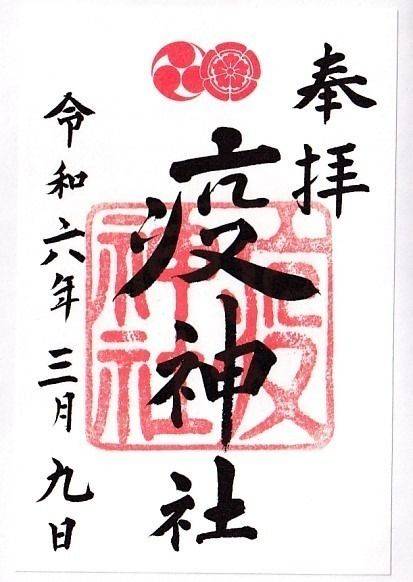 奉拝
疫神社
疫神社
令和六年三月九日